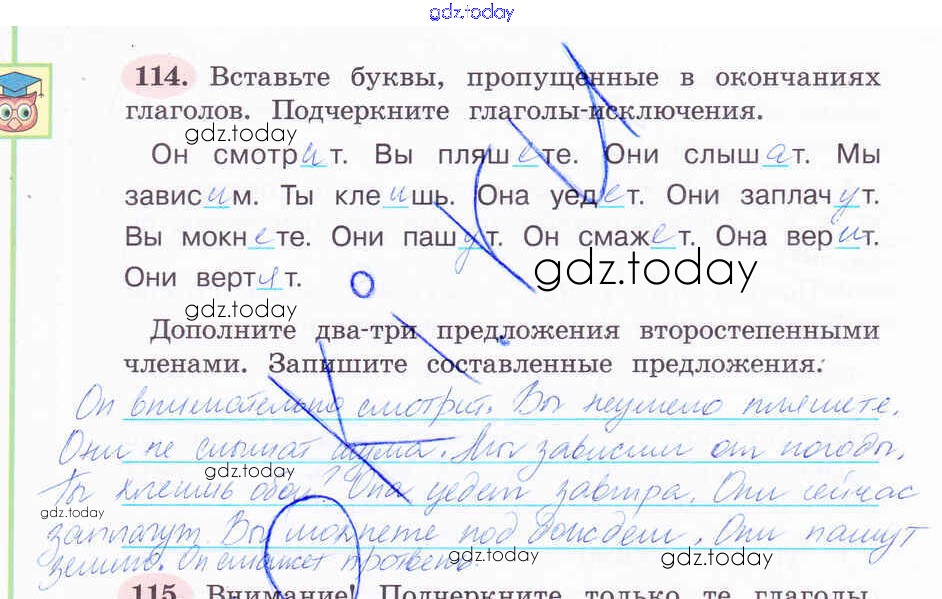 gdz.today
114. Вставьте буквы, пропущенные в окончаниях
глаголов. Подчеркните глаголы-исключения.
gdz.today
Он смотрит. Вы пляшете. Они слышат. Мы
зависим. Ты клеишь. Она уедет. Они заплачут.
Вы мокнете. Они пашут. Он смажет. Она верит.
gdz.today
Они вертят.
gdz.today
Дополните два-три предложения второстепенными
членами. Запишите составленные предложения.
Он внимательно смотрит. Вы неумело пляшете.
Они не слышат шума. Мы зависим от погоды.
gdz.today
Ты клеишь обои? Она уедет завтра. Они сейчас
gdz.today
заплачут. Вы мокнете под дождём. Они пашут
землю. Он смажет противень.
gdz.today
gdz.today
115. Внимание! Подчеркните только те глаголы,